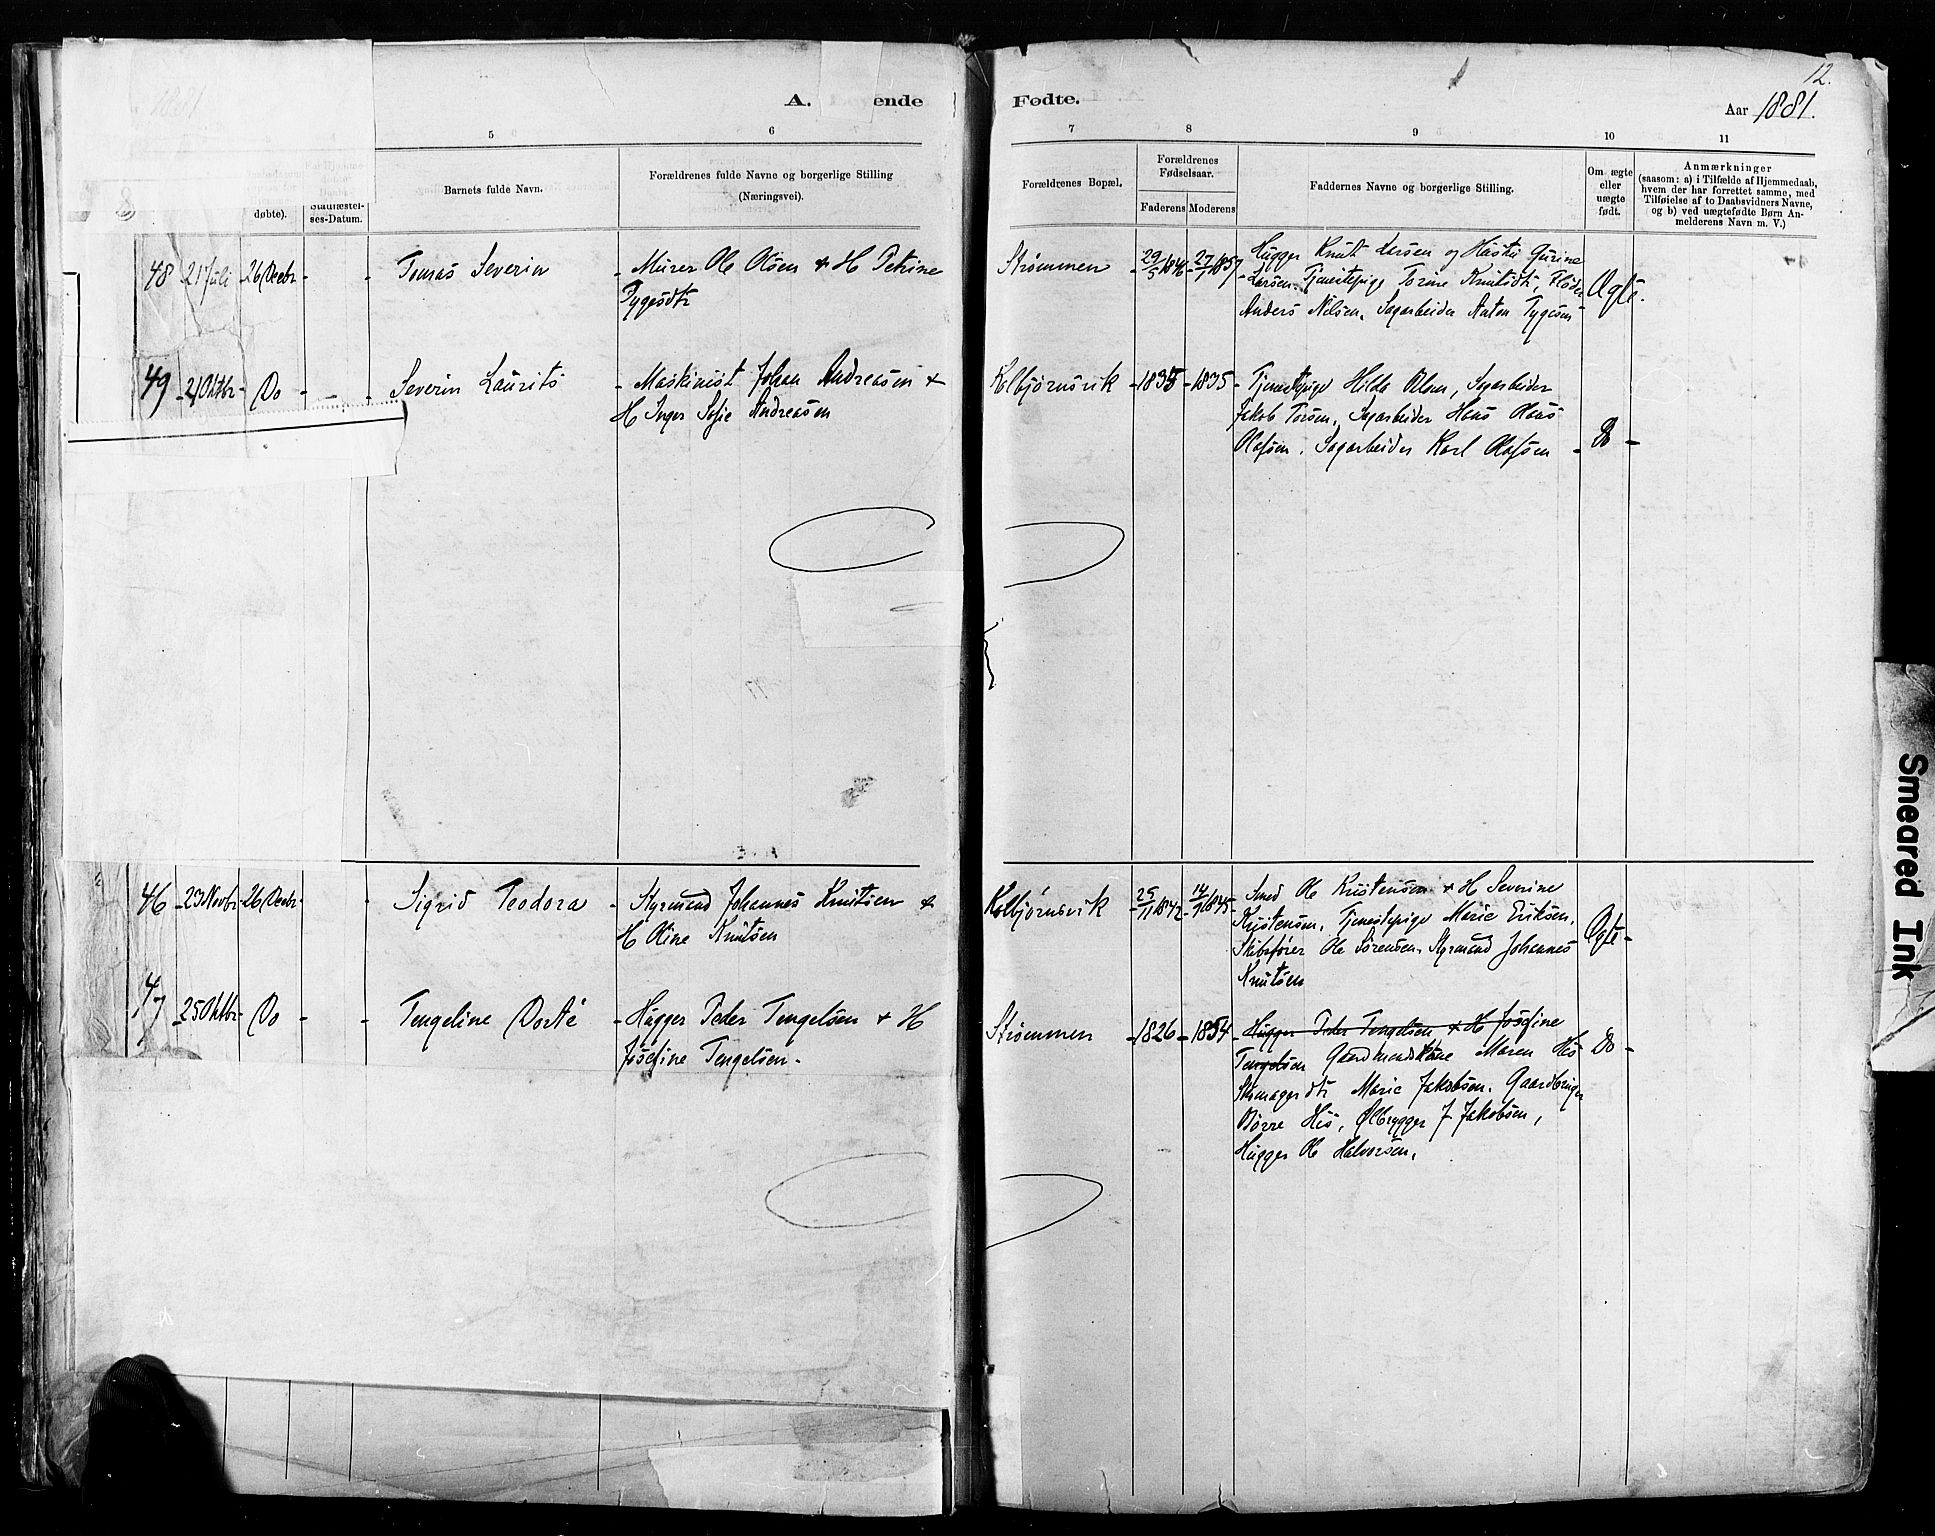 12.
A. ende Fødte.
Aar 1881.
5 6 7 8 9 10 11
døbte).
ses-Datum.
Barnets fulde Navn.
Forældrenes fulde Navne og borgerlige Stilling
(Næringsvei).
Forældrenes Bopæl.
Forældrenes
Fødselsaar.
Faderens Moderens
Faddernes Navne og borgerlige Stilling.
Om ægte
eller
uægte
født.
Anmærkninger
(saasom: a) i Tilfælde af Hjemmedaab,
hvem der har forrettet samme, med
Tilføielse af to Daabsvidners Navne,
og b) ved uægtefødte Børn An-
melderens Navn m. V.)
48 21 Juli 26 Decbr Tomas Severin
Murer Ole Olsen + H Petrine
Tygesdtr
Strømmen 29/5 1846 27/7 1857
Hugger Knut Larsen og Hustru Gurine
Larsen. Tjenestepige Torine Knutsdtr,
Anders Nilsen, Sagarbeider Anton Tygesen
Ægte.
49 21 Oktbr Do Severin Laurits
Maskinist Johan Andreasen +
H Inger Sofie Andreasen
Kolbjørnsvik 1835 1835
Tjenestepige Hilda, Sagarbeider
Jakob Torsen, Sagarbeider Hans
Olafsen, Sagarbeider Karl Olafsen
Do
46 23 Novbr 26 Decbr Sigrid Teodora
Styrmand Johannes Knutsen +
H Oline Knutsen
Kolbjørnsvik 25/11 1842 1845
Smed Ole Kristensen + H Severine
Kristensen, Tjenestepige Marie Eriksen,
Skibsfører Ole Sørensen, Styrmand Johannes
Knutsen
Ægte
47 25 Oktbr Do Tengeline Dorte
Hugger Peder Tengelsen + H
Josefine Tengelsen
Strømmen 1826 1854
Hugger Peder Tengelsen + H Josefine
Tengelsen Gaardmandskone Maren His
Marie Jakobsen. Gaardbruger
Børre His, Ølbrygger J Jakobsen,
Hugger Ole Halvorsen.
Do
Smeared Ink